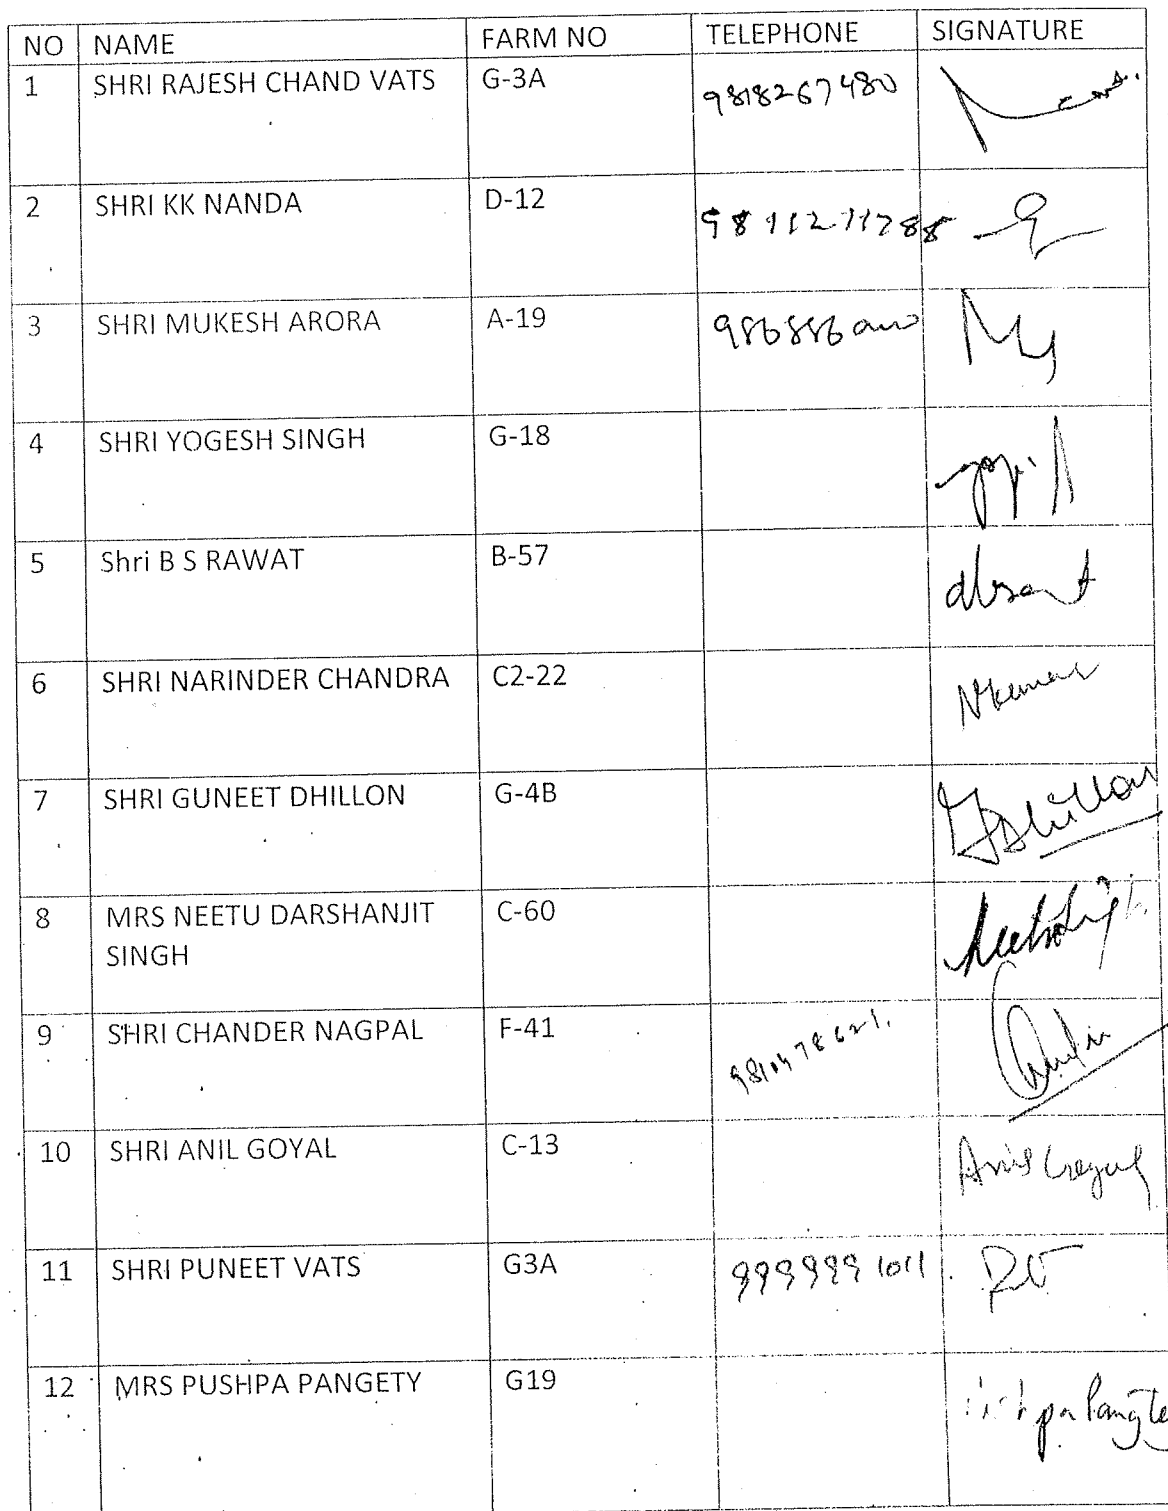 NO NAME FARM NO TELEPHONE SIGNATURE
1 SHRI RAJESH CHAND VATS G-3A 9818267480
2 SHRI KK NANDA D-12 9811271788
3 SHRI MUKESH ARORA A-19
4 SHRI YOGESH SINGH G-18
5 Shri B S RAWAT B-57
6 SHRI NARINDER CHANDRA C2-22 Nkumar
7 SHRI GUNEET DHILLON G-4B GDhillon
8 MRS NEETU DARSHANJIT C-60
SINGH
9 SHRI CHANDER NAGPAL F-41
10 SHRI ANIL GOYAL C-13 Anil Goyal
11 SHRI PUNEET VATS G3A 9999991011
12 MRS PUSHPA PANGETY G19